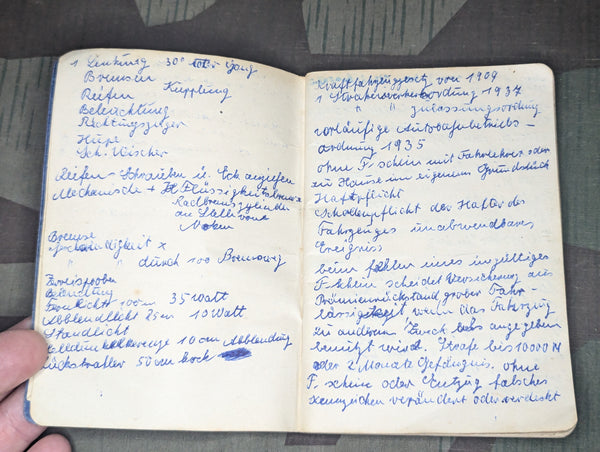 1 Lenkung 30° toter Gang
Bremsen
Reifen Kupplung
Beleuchtung
Richtungszeiger
Hupe
Sch. Wischer
Reifen - Schrauben u. Ecke
Mechanische + Flüssigkeitsbremse
Radbremszylinder
an Stelle von
Nocken
Bremse
Geschwindigkeit x
" " durch 100 Bremsweg
Beleuchtung
Fernlicht 100 m 35 Watt
Abblendlicht 25 m 10 Watt
Standlicht
10 cm Abblendung
Rückstrahler 50 cm hoch
Kraftfahrzeuggesetz von 1909
1 Straßenverkehrsordnung 1937
" Zulassungsordnung
vorläufige Autobahnbetriebs-
ordnung 1935
ohne F-schein mit Fahrlehrer oder
zu Hause im eigenem Grundstück
Haftpflicht
Schadenpflicht der Halter des
Fahrzeuges unabwendbares
Ereigniss
beim fehlen eines ungültiges
F-schein scheidet Versicherung aus
Prämienrückstand grober Fahr-
lässigkeit wenn das Fahrzeug
zu anderem Zweck als angegeben
benützt wird. Strafe bis 10000 M
oder 2 Monate Gefängnis. ohne
F. schein oder Entzug falsches
Kennzeichen verändert oder verdeckt